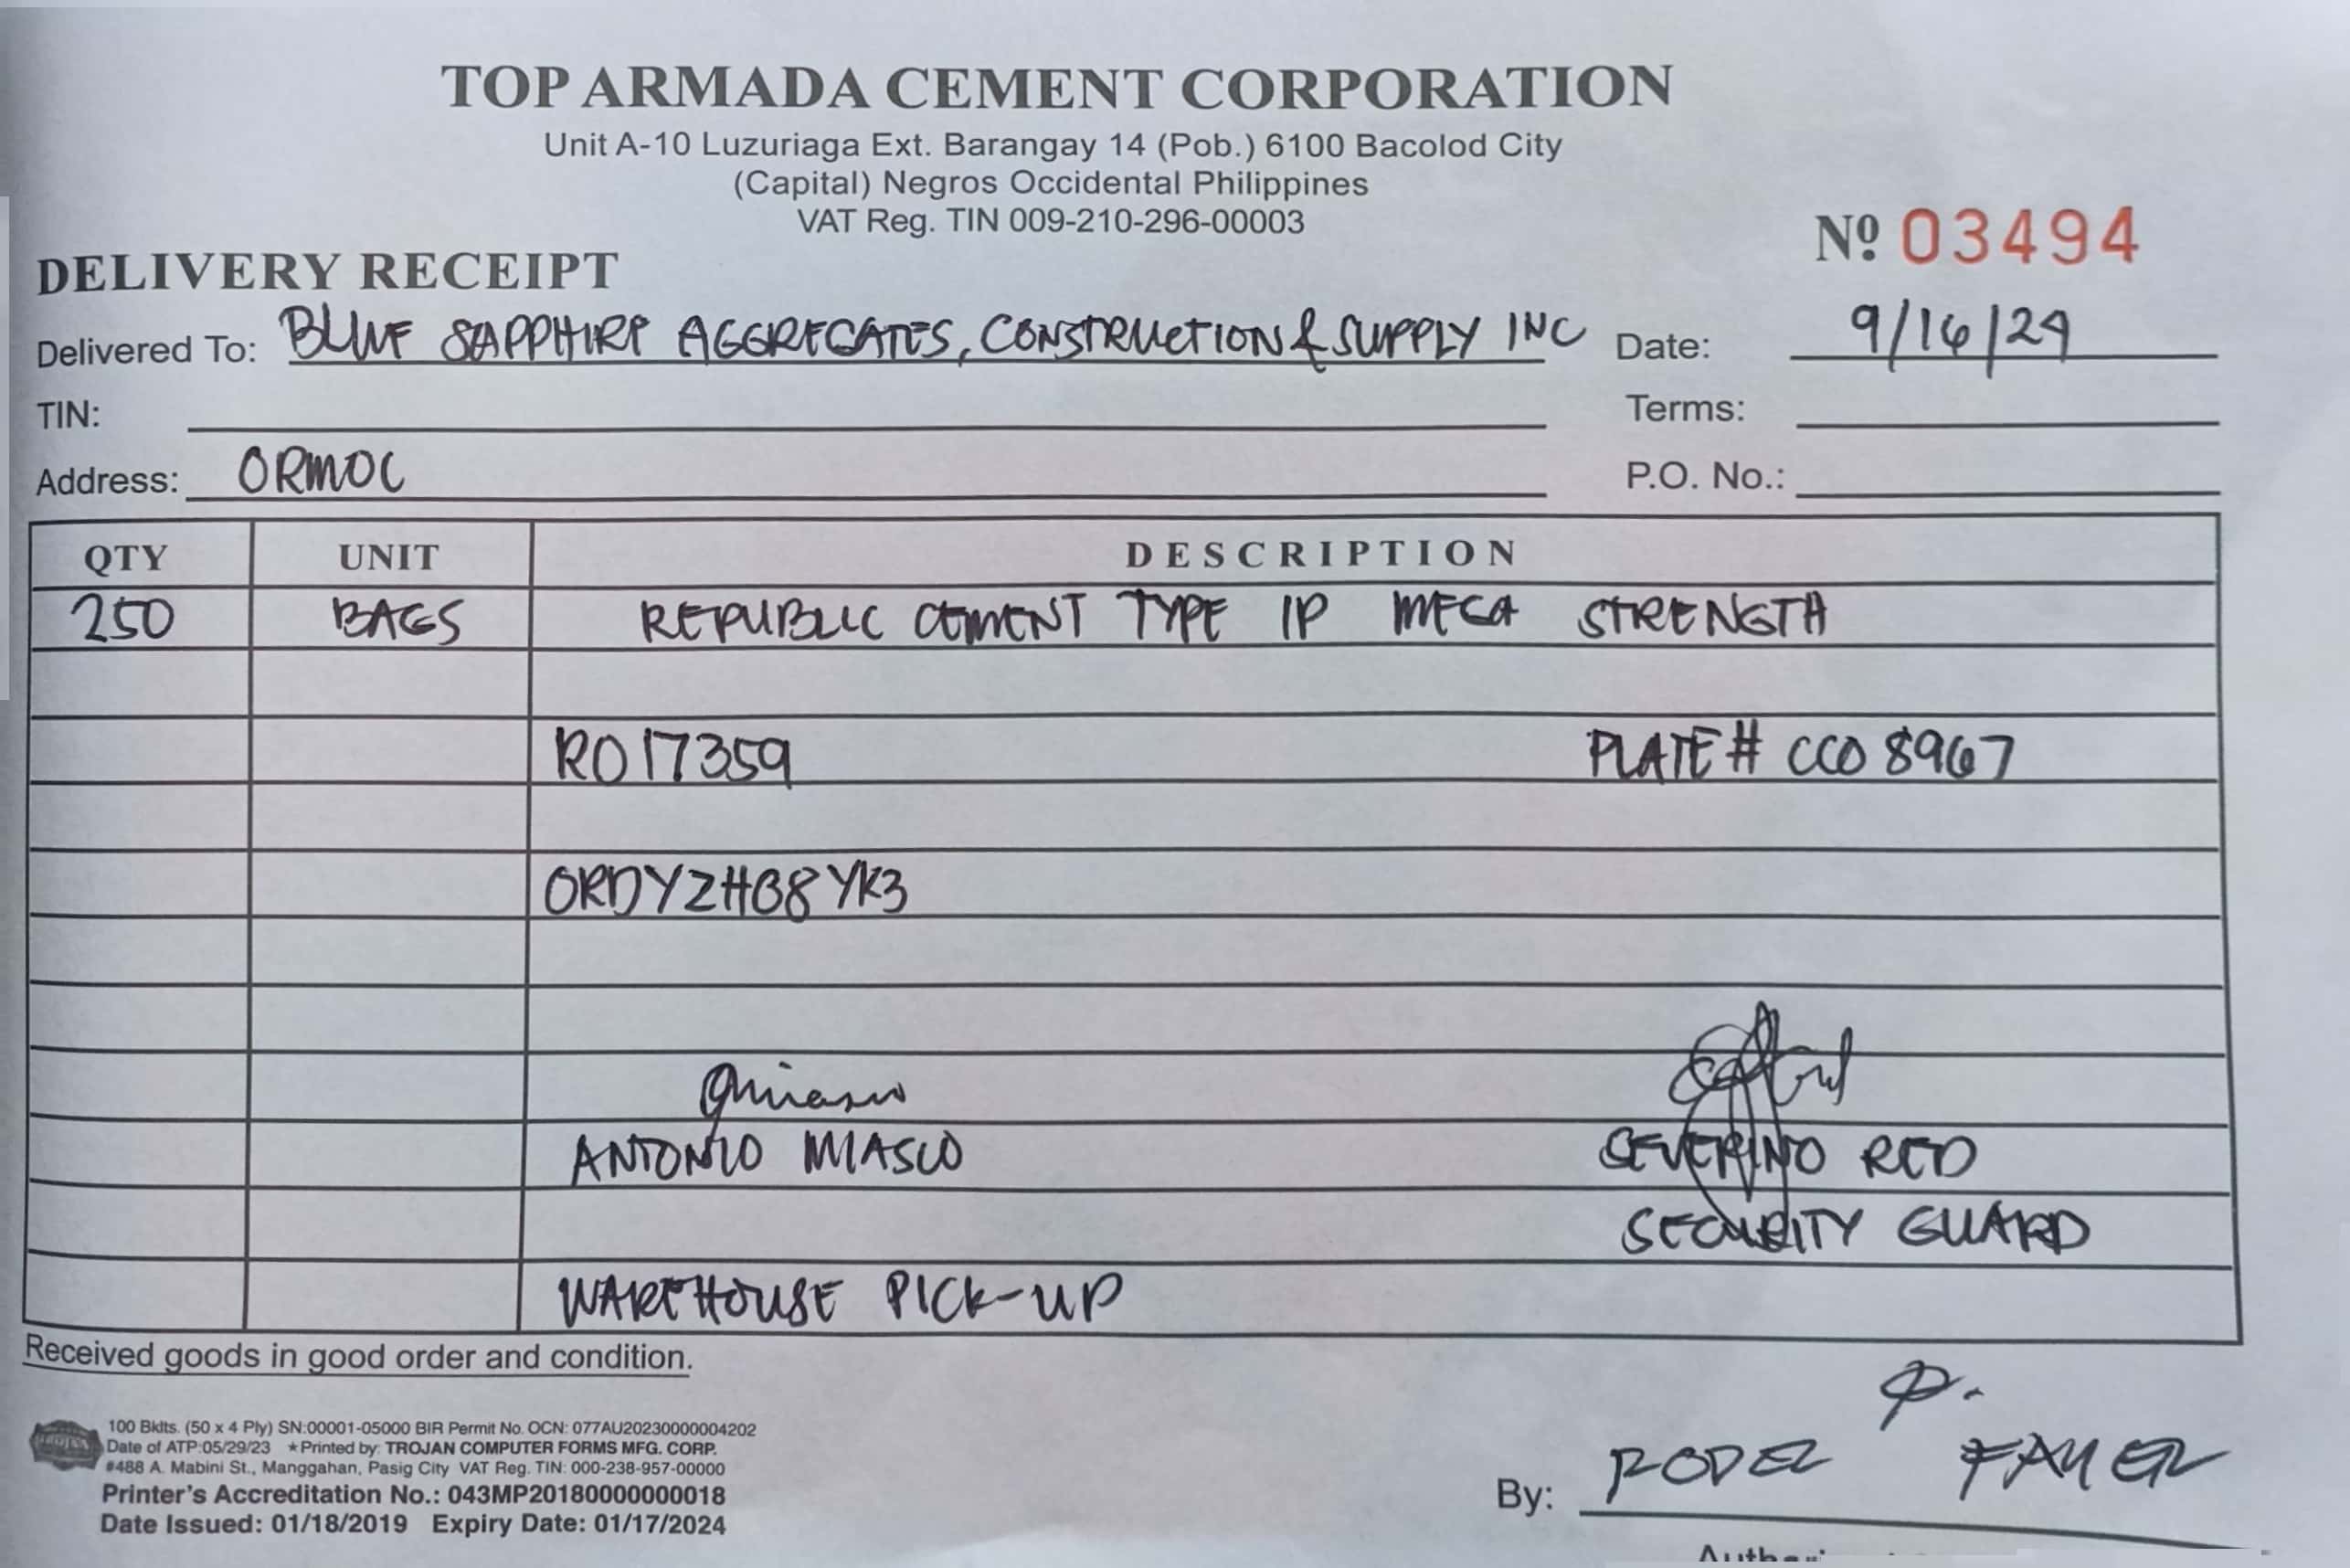 TOP ARMADA CEMENT CORPORATION
Unit A-10 Luzuriaga Ext. Barangay 14 (Pob.) 6100 Bacolod City
(Capital) Negros Occidental Philippines
VAT Reg. TIN 009-210-296-00003
Nº 03494
DELIVERY RECEIPT
Delivered To: BLUE SAPPHIRE AGGREGATES, CONSTRUCTION & SUPPLY INC Date: 9/16/24
TIN: Terms:
Address: ORMOC P.O. No.:
QTY UNIT DESCRIPTION
250 BAGS REPUBLIC CEMENT TYPE IP MEGA STRENGTH
RO17359 PLATE# CCO 8967
ORDYZHG8YK3
ANTONIO MIASCO SEVERINO RED
SECURITY GUARD
WAREHOUSE PICK-UP
Received goods in good order and condition.
100 Bklts. (50 x 4 Ply) SN:00001-05000 BIR Permit No. OCN: 077AU20230000004202
Date of ATP:05/29/23 ★Printed by: TROJAN COMPUTER FORMS MFG. CORP.
#488 A. Mabini St., Manggahan, Pasig City VAT Reg. TIN: 000-238-957-00000
Printer's Accreditation No.: 043MP20180000000018
Date Issued: 01/18/2019 Expiry Date: 01/17/2024
By: RODEL